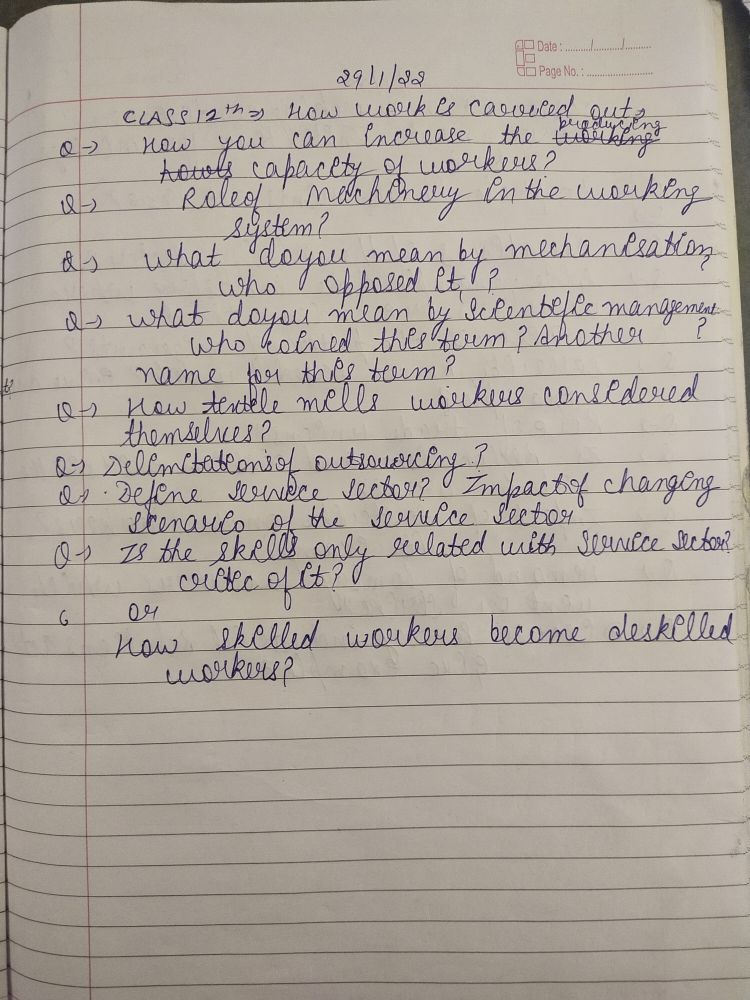 Date : ........../........../..........
Page No. : ........................
29/1/22
CLASS 12th → How work is carried out →
Q → How you can increase the working producing
hours capacity of workers?
Q → Role of Machinery in the working
system?
Q → what do you mean by mechanisation,
who opposed it ? ?
Q → what do you mean by scientific management
who coined this term? Another ?
name for this term?
Q → How textile mills workers considered
themselves?
Q → Delimitations of outsourcing?
Q → Define service sector? Impact of changing
scenario of the service sector
Q → Is the skills only related with service sector?
critic of it?
or
How skilled workers become deskilled
workers?